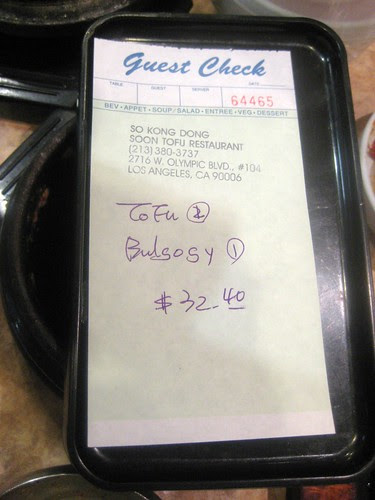 Guest Check
TABLE GUEST SERVER DATE
64465
BEV • APPET • SOUP/SALAD • ENTREE • VEG • DESSERT
SO KONG DONG
SOON TOFU RESTAURANT
(213)380-3737
2716 W. OLYMPIC BLVD., #104
LOS ANGELES, CA 90006
ToFu 2
Bulgogy 1
$ 32.40